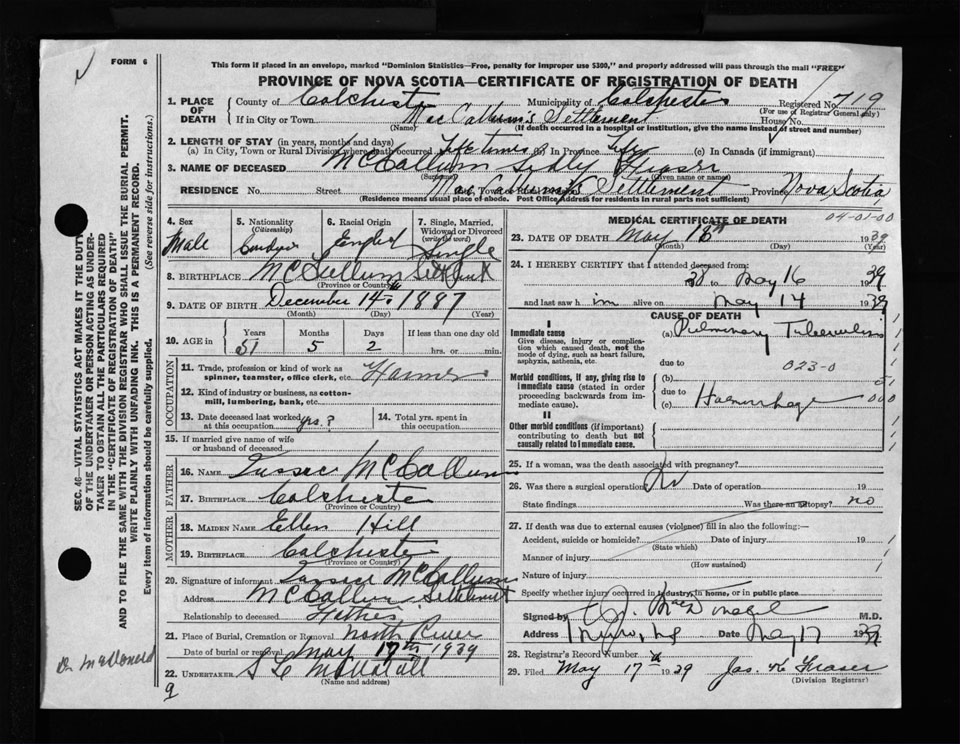 FORM 6
This form if placed in an envelope, marked "Dominion Statistics—Free, penalty for improper use $300," and properly addressed will pass through the mail "FREE"
PROVINCE OF NOVA SCOTIA—CERTIFICATE OF REGISTRATION OF DEATH
1. PLACE OF DEATH
County of Colchester Municipality of Colchester Registered No. 719
(For use of Registrar General only)
If in City or Town MacCallum's Settlement House No.
(Name) (If death occurred in a hospital or institution, give the name instead of street and number)
2. LENGTH OF STAY (in years, months and days)
(a) In City, Town or Rural Division where death occurred Life time (b) In Province Life (c) In Canada (if immigrant)
3. NAME OF DECEASED McCallum
(Surname) (Given name or names)
RESIDENCE No. Street MacCallum's Settlement Province Nova Scotia
(Residence means usual place of abode. Post Office Address for residents in rural parts not sufficient)
4. Sex Male
5. Nationality (Citizenship)
6. Racial Origin English
7. Single, Married, Widowed or Divorced (write the word) Single
8. BIRTHPLACE McCullum Settlement
(Province or Country)
9. DATE OF BIRTH December 14th 1887
(Month) (Day) (Year)
10. AGE in Years Months Days If less than one day old
51 5 2 hrs. or min.
OCCUPATION
11. Trade, profession or kind of work as spinner, teamster, office clerk, etc. Farmer
12. Kind of industry or business, as cotton-mill, lumbering, bank, etc.
13. Date deceased last worked at this occupation yrs.?
14. Total yrs. spent in this occupation
15. If married give name of wife or husband of deceased
FATHER
16. NAME McCallum
17. BIRTHPLACE Colchester
(Province or Country)
MOTHER
18. MAIDEN NAME Ellen Hill
19. BIRTHPLACE Colchester
(Province or Country)
20. Signature of informant McCallum
Address McCallum Settlement
Relationship to deceased Father
21. Place of Burial, Cremation or Removal North River
Date of burial or removal May 17th 1939
22. UNDERTAKER
(Name and address)
9
MEDICAL CERTIFICATE OF DEATH
04-01-00
23. DATE OF DEATH May 1939
(Month) (Day) (Year)
24. I HEREBY CERTIFY that I attended deceased from:
38 to May 16 1939
and last saw him alive on May 14 1939
CAUSE OF DEATH
I
Immediate cause
Give disease, injury or complication which caused death, not the mode of dying, such as heart failure, asphyxia, asthenia, etc.
(a) Pulmonary Tuberculosis
due to 023-0
Morbid conditions, if any, giving rise to immediate cause (stated in order proceeding backwards from immediate cause).
(b)
due to
(c) Haemorrhage
II
Other morbid conditions (if important) contributing to death but not causally related to immediate cause.
25. If a woman, was the death associated with pregnancy?
26. Was there a surgical operation? No Date of operation 19
State findings Was there an autopsy? no
27. If death was due to external causes (violence) fill in also the following:—
Accident, suicide or homicide? Date of injury 19
(State which)
Manner of injury
(How sustained)
Nature of injury
Specify whether injury occurred in industry, in home, or in public place
Signed by M.D.
Address Truro, N.S. Date May 17 1939
28. Registrar's Record Number
29. Filed May 17 1939 Jas. K Fraser
(Division Registrar)
SEC. 46—VITAL STATISTICS ACT MAKES IT THE DUTY OF THE UNDERTAKER OR PERSON ACTING AS UNDERTAKER TO OBTAIN ALL THE PARTICULARS REQUIRED IN THE "CERTIFICATE OF REGISTRATION OF DEATH"
AND TO FILE THE SAME WITH THE DIVISION REGISTRAR WHO SHALL ISSUE THE BURIAL PERMIT.
WRITE PLAINLY WITH UNFADING INK. THIS IS A PERMANENT RECORD.
Every item of information should be carefully supplied. (See reverse side for instructions.)